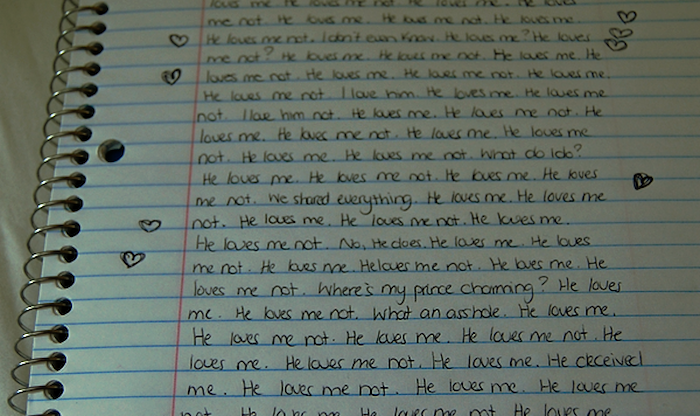 loves me. He loves me not. He loves me. He loves
me not. He loves me. He loves me not. He loves me.
He loves me not. I don't even know. He loves me? He loves
me not? He loves me. He loves me not. He loves me. He
loves me not. He loves me. He loves me not. He loves me.
He loves me not. I love him. He loves me. He loves me
not. I love him not. He loves me. He loves me not. He
loves me. He loves me not. He loves me. He loves me
not. He loves me. He loves me not. What do I do?
He loves me. He loves me not. He loves me. He loves
me not. We shared everything. He loves me. He loves me
not. He loves me. He loves me not. He loves me.
He loves me not. No, He does. He loves me. He loves
me not. He loves me. He loves me not. He loves me. He
loves me not. Where's my prince charming? He loves
me. He loves me not. What an asshole. He loves me.
He loves me not. He loves me. He loves me not. He
loves me. He loves me not. He loves me. He deceived
me. He loves me not. He loves me. He loves me
not. He loves me. He loves me not. He loves me